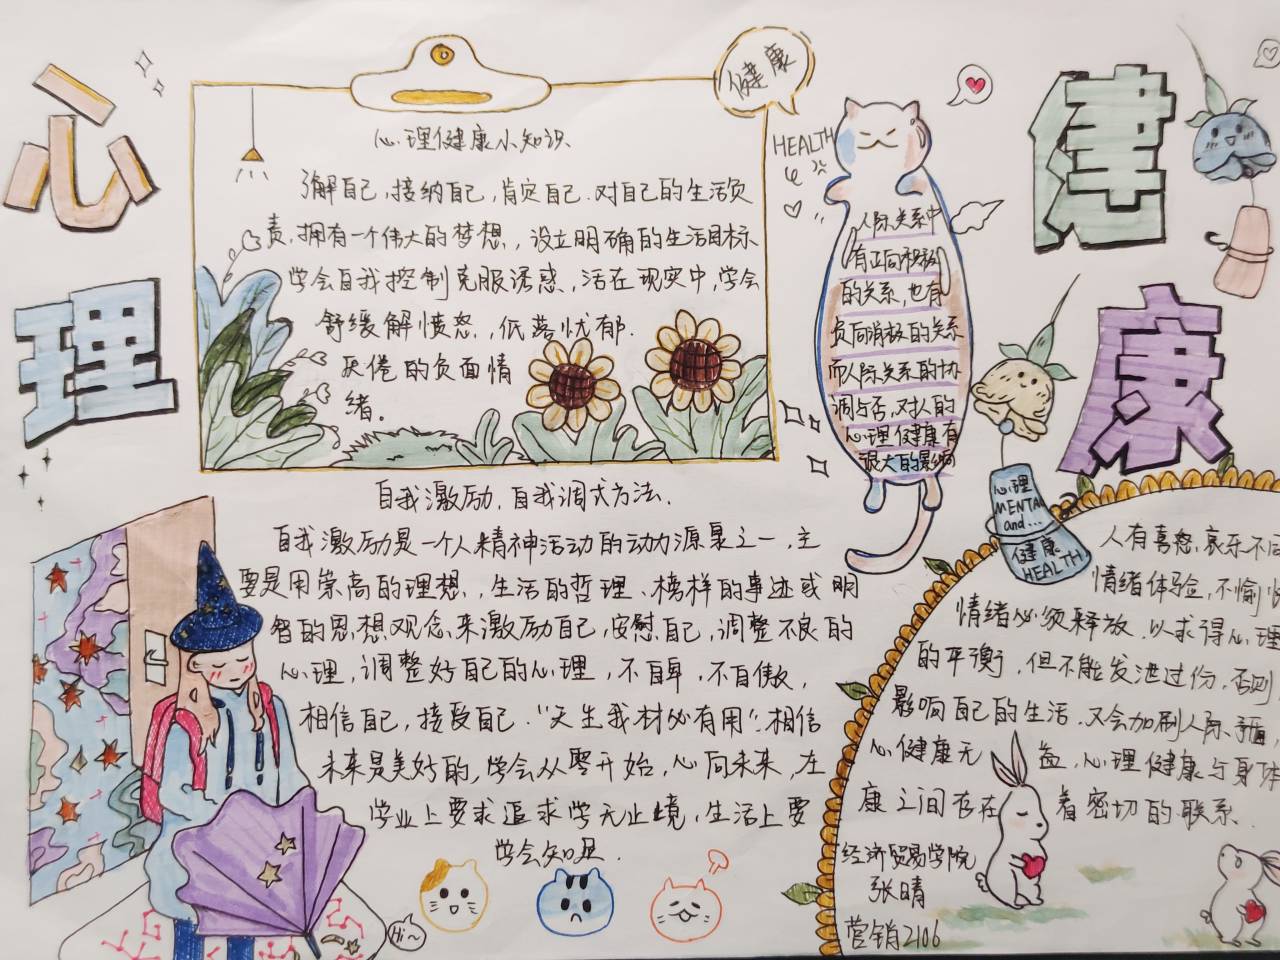 心理
健康
健康
HEALTH
心理健康小知识
了解自己,接纳自己,肯定自己.对自己的生活负
责,拥有一个伟大的梦想,设立明确的生活目标
学会自我控制克服诱惑,活在现实中,学会
舒缓解愤怒,低落忧郁.
厌倦的负面情
绪。
人际关系中
有正向积极
的关系,也有
负向消极的关系
而人际关系的协
调与否,对人的
心理健康有
很大的影响
自我激励,自我调式方法、
自我激励是一个人精神活动的动力源泉之一,主
要是用崇高的理想,生活的哲理、榜样的事迹或明
智的思想观念来激励自己,安慰自己,调整不良的
心理,调整好自己的心理,不自卑,不自傲,
相信自己,接受自己.“天生我材必有用”.相信
未来是美好的,学会从零开始,心向未来,在
学业上要求追求学无止境,生活上要
学会知足.
Hi~
心理
MENTAL
and...
健康
HEALTH
人有喜怒,哀乐不同
情绪体验,不愉快
情绪必须释放,以求得心理
的平衡,但不能发泄过份,否则
影响自己的生活,又会加剧人际矛盾,
心健康无益,心理健康与身体
康之间存在着密切的联系.
经济贸易学院
张晴
营销2106